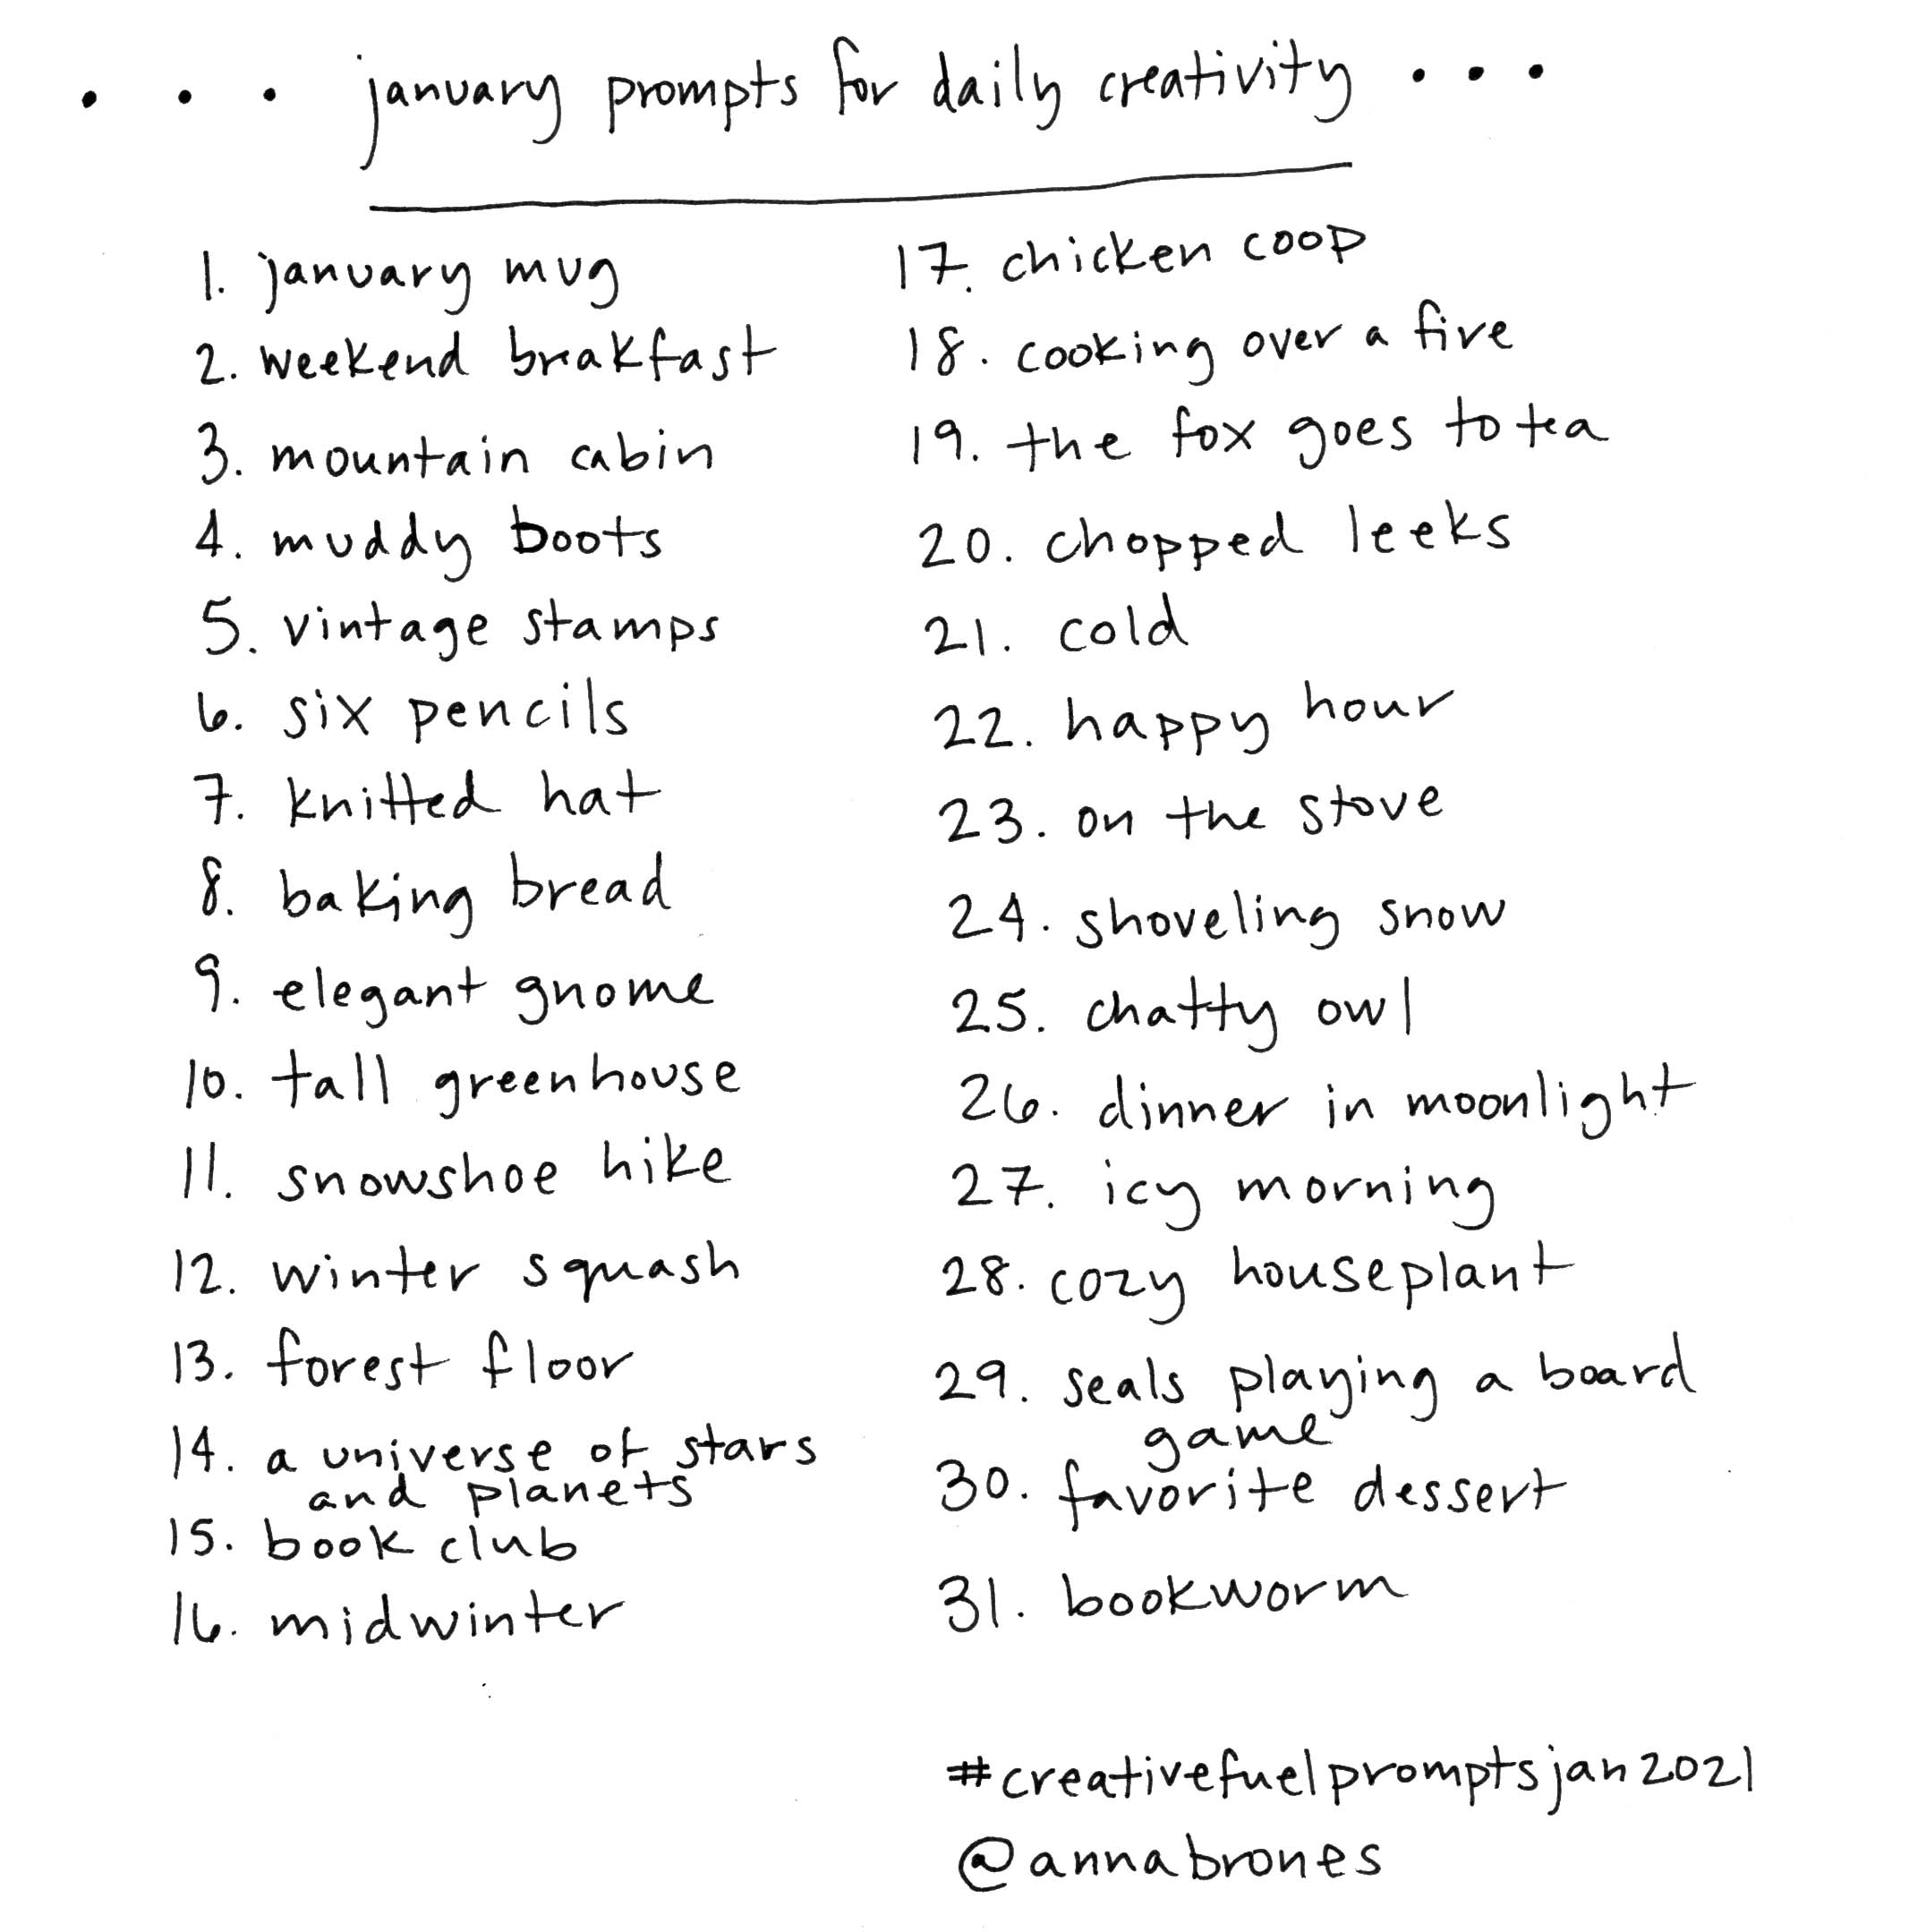 ... january prompts for daily creativity ...
1. january mug
2. weekend breakfast
3. mountain cabin
4. muddy boots
5. vintage stamps
6. six pencils
7. knitted hat
8. baking bread
9. elegant gnome
10. tall greenhouse
11. snowshoe hike
12. winter squash
13. forest floor
14. a universe of stars
and planets
15. book club
16. midwinter
17. chicken coop
18. cooking over a fire
19. the fox goes to tea
20. chopped leeks
21. cold
22. happy hour
23. on the stove
24. shoveling snow
25. chatty owl
26. dinner in moonlight
27. icy morning
28. cozy houseplant
29. seals playing a board
game
30. favorite dessert
31. bookworm
#creativefuelpromptsjan2021
@annabrones